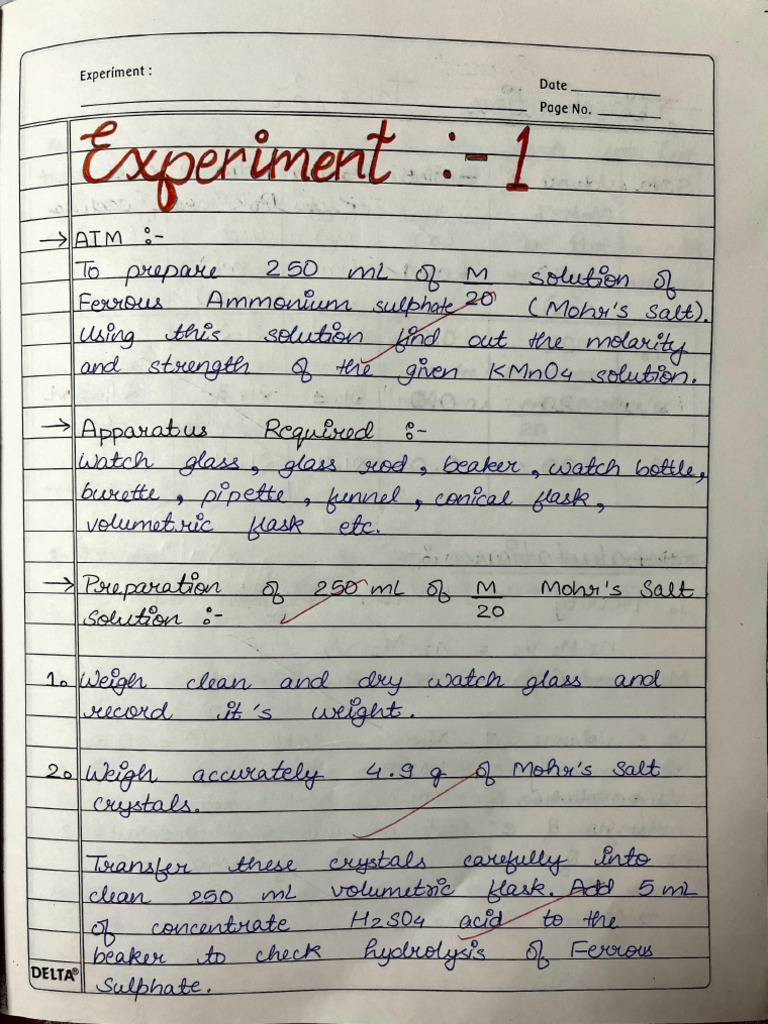 Experiment :
Date
Page No.
Experiment :- 1
→ AIM :-
To prepare 250 mL of M/20 solution of
Ferrous Ammonium sulphate (Mohr's Salt).
Using this solution find out the molarity
and strength of the given KMnO4 solution.
→ Apparatus Required :-
Watch glass, glass rod, beaker, watch bottle,
burette, pipette, funnel, conical flask,
volumetric flask etc.
→ Preparation of 250 mL of M/20 Mohr's Salt
Solution :-
1. Weigh clean and dry watch glass and
record it's weight.
2. Weigh accurately 4.9 g of Mohr's Salt
crystals.
Transfer these crystals carefully into
clean 250 mL volumetric flask. Add 5 mL
of concentrate H2SO4 acid to the
beaker to check hydrolysis of Ferrous
Sulphate.
DELTA®